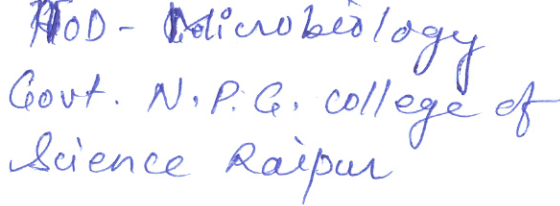 HOD - Microbiology
Govt. N.P.G. college of
Science Raipur